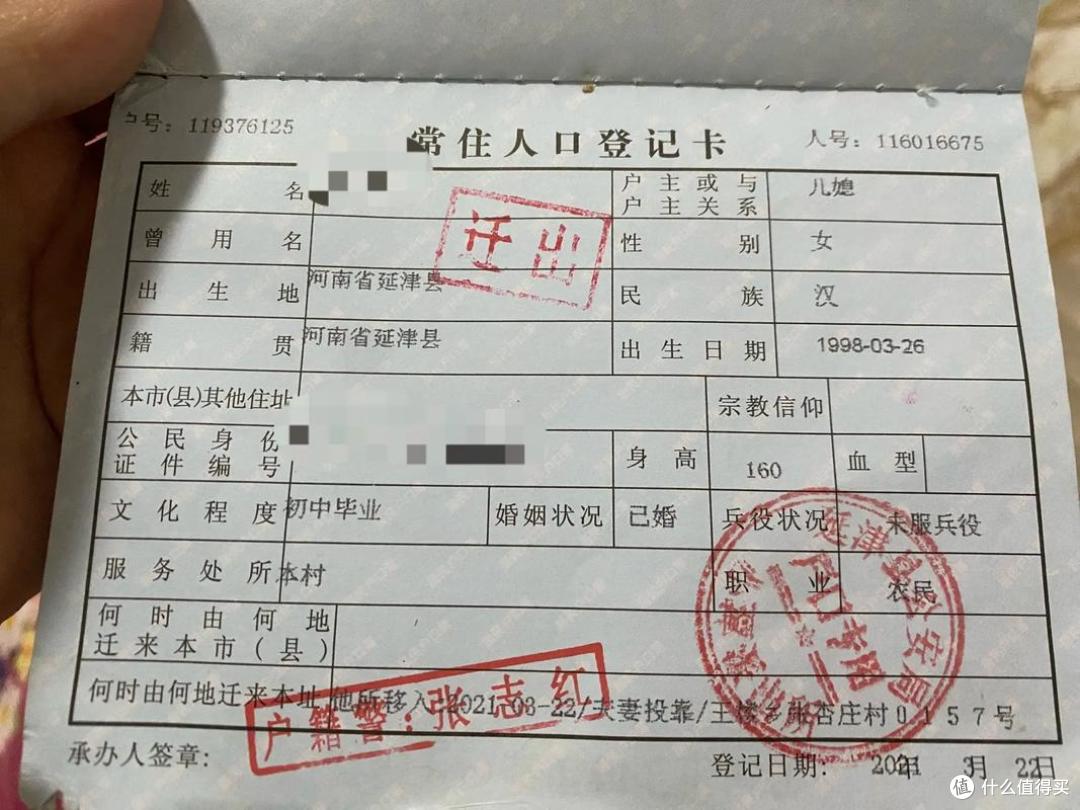 户号：119376125
常住人口登记卡
人号：116016675
姓名
户主或与户主关系 儿媳
曾用名
性别 女
出生地 河南省延津县
民族 汉
籍贯 河南省延津县
出生日期 1998-03-26
本市(县)其他住址
宗教信仰
公民身份证件编号
身高 160
血型
文化程度 初中毕业
婚姻状况 已婚
兵役状况 未服兵役
服务处所 本村
职业 农民
何时由何地迁来本市(县)
何时由何地迁来本址 他所移入/2021-03-22/夫妻投靠/王楼乡张杏庄村0157号
承办人签章：
登记日期：2021年3月22日
迁出
户籍警：张志红
户口专用
值 什么值得买